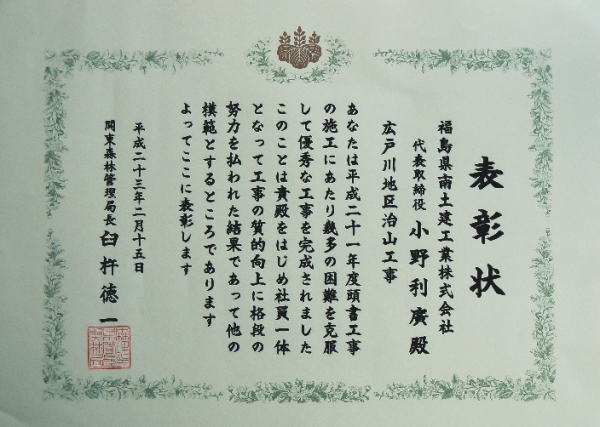 表彰状
福島県南土建工業株式会社
代表取締役 小野利廣殿
広戸川地区治山工事
あなたは平成二十一年度頭書工事
の施工にあたり幾多の困難を克服
して優秀な工事を完成されました
このことは貴殿をはじめ社員一体
となって工事の質的向上に格段の
努力を払われた結果であって他の
模範とするところであります
よってここに表彰します
平成二十三年二月十五日
関東森林管理局長 臼杵徳一